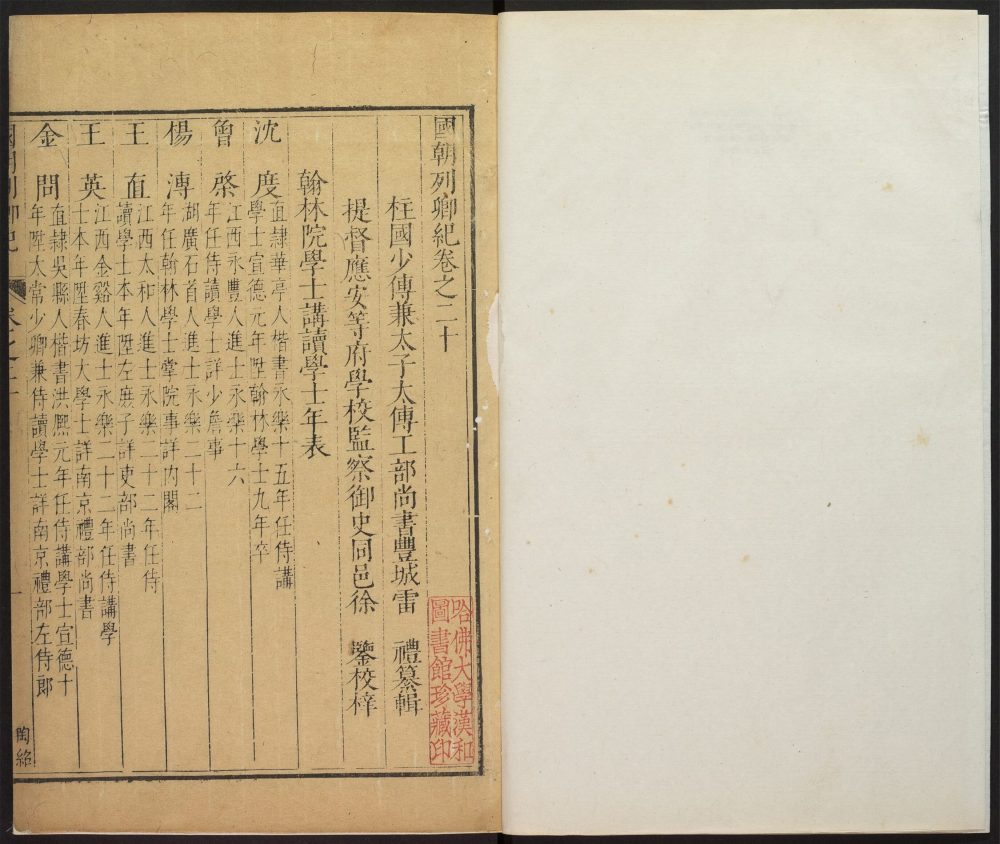 國朝列卿紀卷之二十
柱國少傅兼太子太傅工部尚書豐城雷 禮纂輯
提督應安等府學校監察御史同邑徐 鑒校梓
翰林院學士講讀學士年表
沈度 直隸華亭人楷書永樂十五年任侍講
學士宣德元年陞翰林學士九年卒
曾棨 江西永豐人進士永樂十六
年任侍讀學士詳少詹事
楊溥 湖廣石首人進士永樂二十二
年任翰林學士掌院事詳內閣
王直 江西太和人進士永樂二十二年任侍
讀學士本年陞左庶子詳吏部尚書
王英 江西金谿人進士永樂二十二年任侍講學
士本年陞春坊大學士詳南京禮部尚書
金問 直隸吳縣人楷書洪熈元年任侍講學士宣德十
年陞太常少卿兼侍讀學士詳南京禮部左侍郎
國朝列卿紀 卷之二十 一
陶紿
哈佛大學漢和
圖書館珍藏印